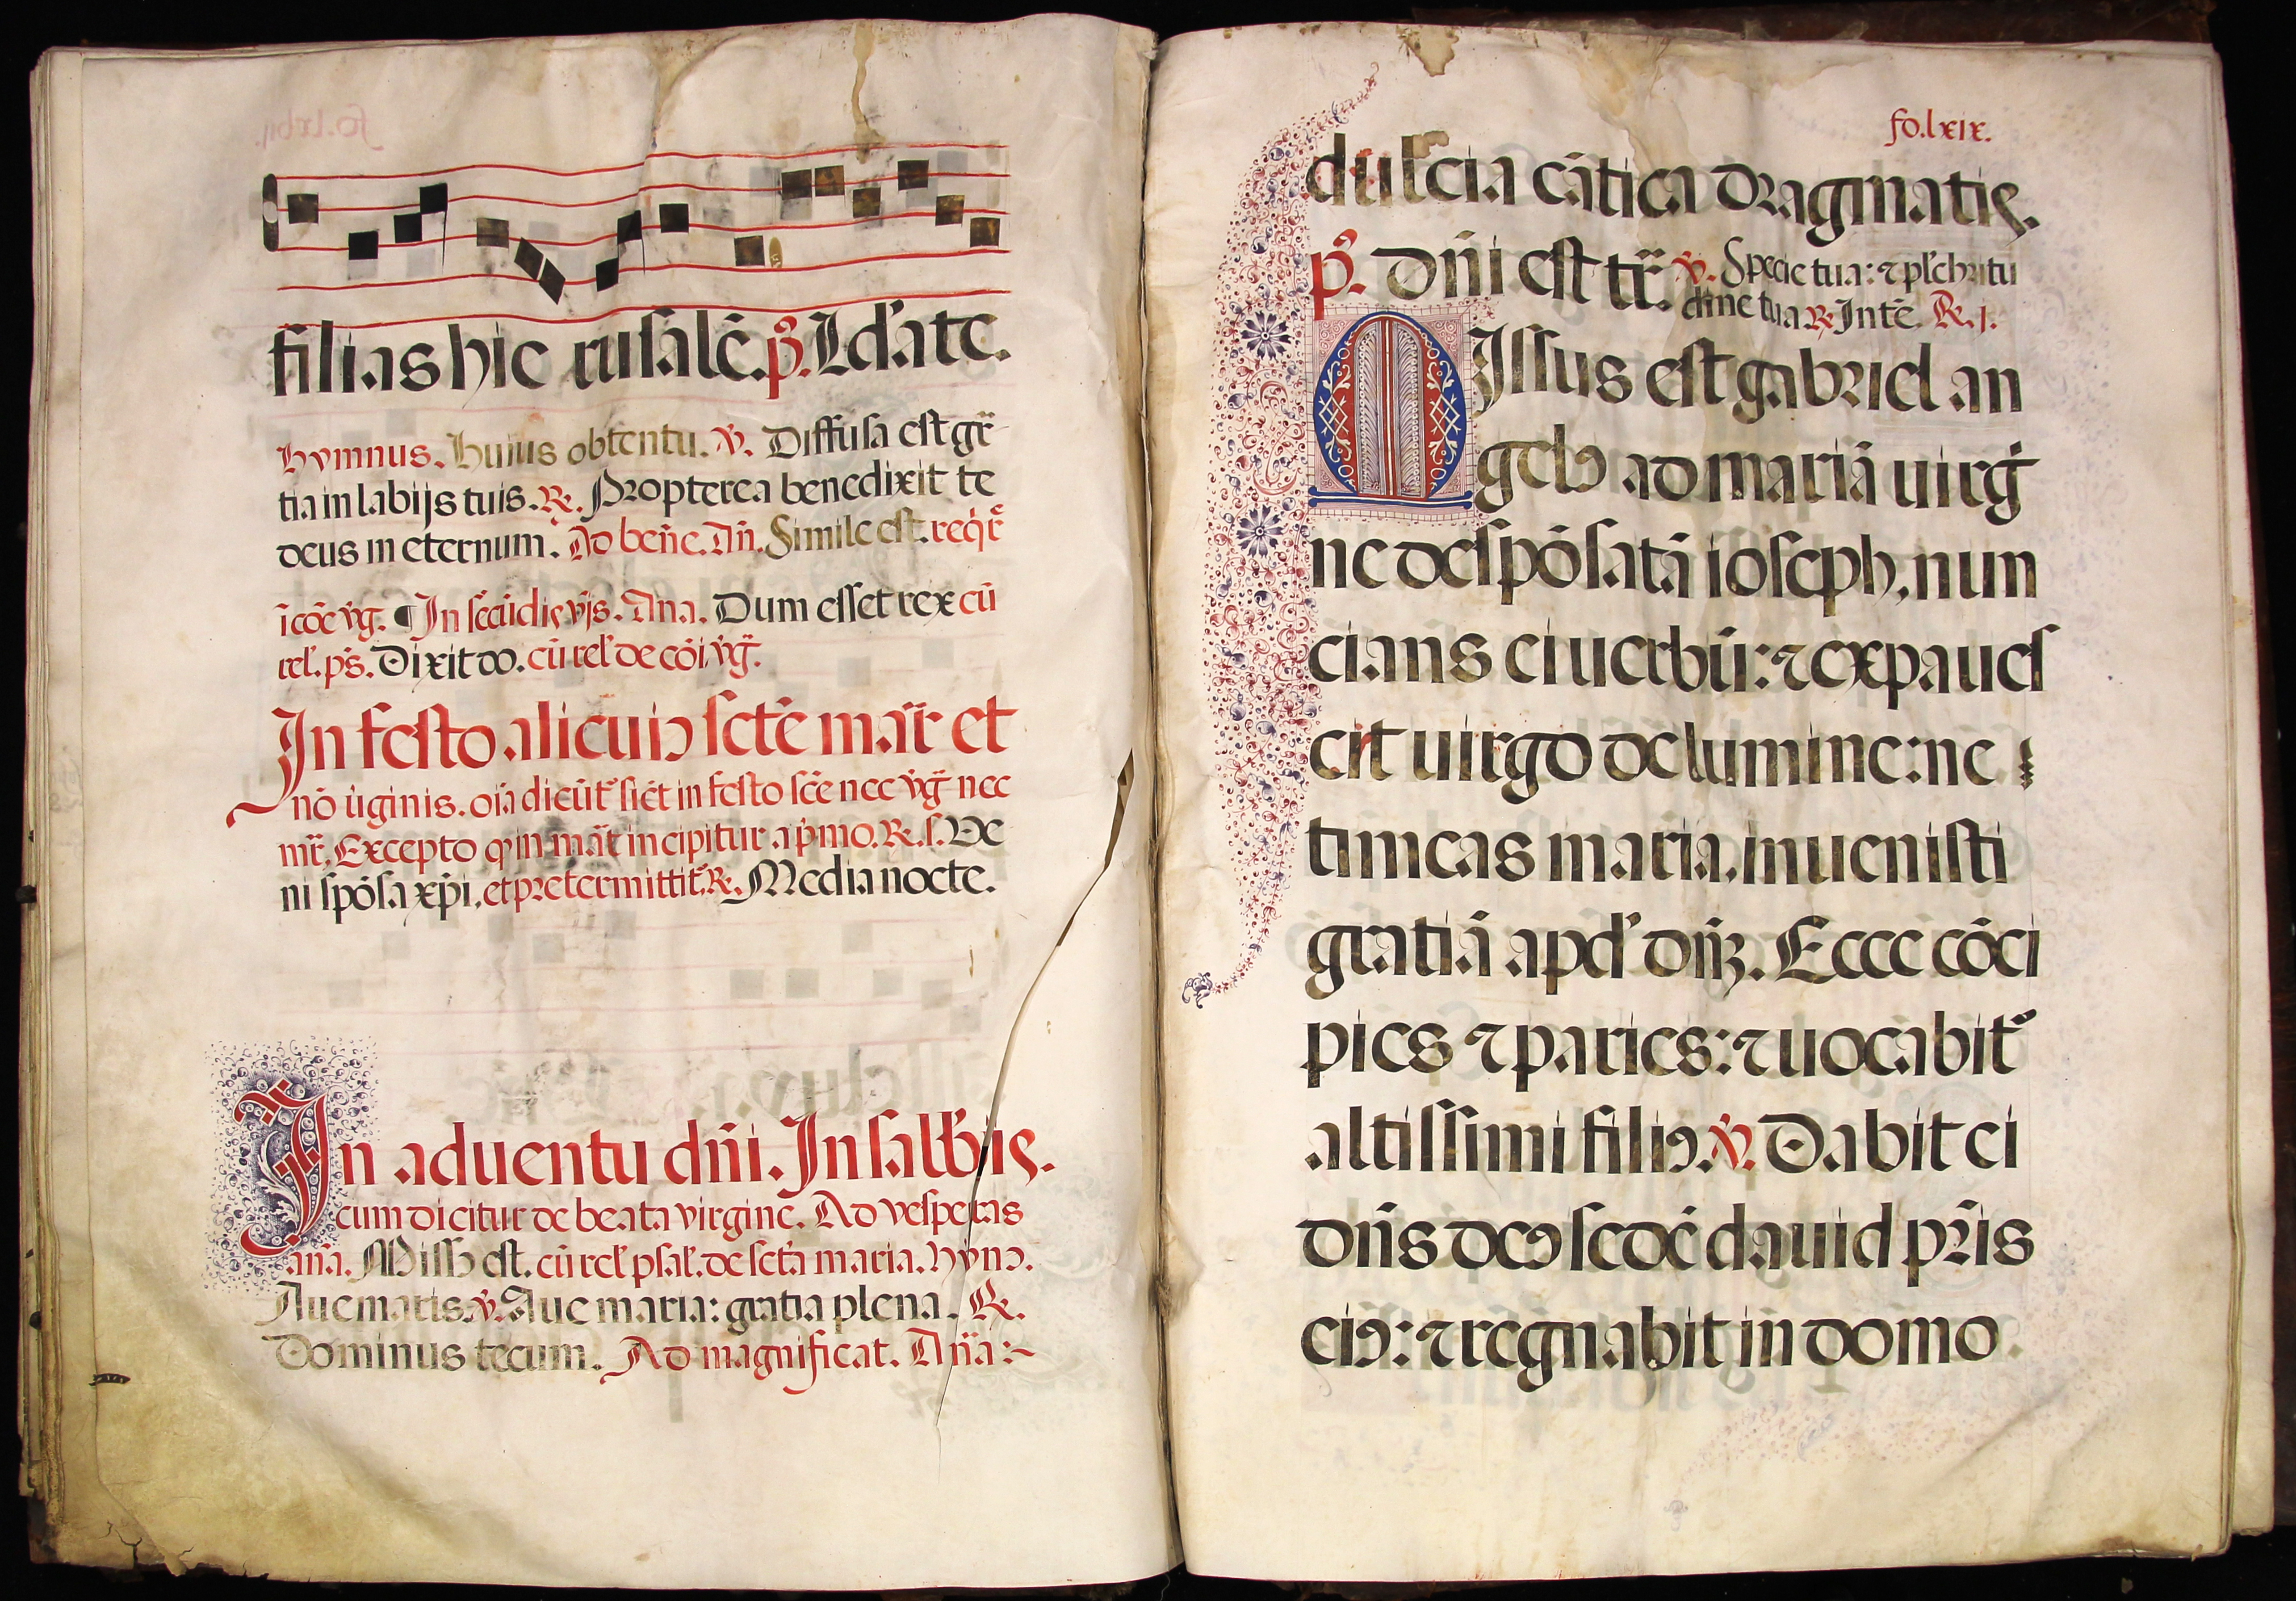 filias hie rusalē. p̄. Ld'ate.
hymnus. Huius obtentu. v̄. Diffusa est gr̄
tia in labijs tuis. R. Propterea benedixit te
deus in eternum. Ad ben̄e. An̄. Simile est. reqr̄
ī cōe v̄g. ¶ In sēcūdis v̄js. Ana. Dum esset rex cū
rel'. ps̄. Dixit do. cū rel' de cōi v̄g.
In festo alicuiꝰ sctē mar̄ et
nō v̄ginis. oīa dicūt᷑ sic̄t in festo scē nec v̄g nec
mr̄. Excepto q in mat̄ incipitur a p̄mo. R. s. Ve
ni spōsa xp̄i. et pretermittit᷑. R. Media nocte.
In aduentu dn̄i. In salb̄is.
cum dicitur de beata virgine. Ad vesperas
an̄a. Missꝰ est. cū rel' psal'. de sctā maria. hynꝰ.
Aue maris. v̄. Aue maria: gratia plena. R.
Dominus tecum. Ad magnificat. An̄a:~
fo. lxix.
dulcia cātica dragmatis.
p̄. Dn̄i est tr̄. v̄. Specie tua: ⁊ pl'chritu
dine tua R Intē. R. j.
MIssus est gabriel an
gelꝰ ad mariā uirgi
ne despōsatā ioseph, nun
cians ei uerbū: ⁊ expaues
cit uirgo de lumine: ne
timeas maria, inuenisti
gratiā apd' dn̄ꝫ. Ecce cōci
pies ⁊ paries: ⁊ uocabit᷑
altissimi filiꝰ. v̄. Dabit ei
dn̄s deꝰ sedē dauid pr̄is
eiꝰ: ⁊ regnabit in domo